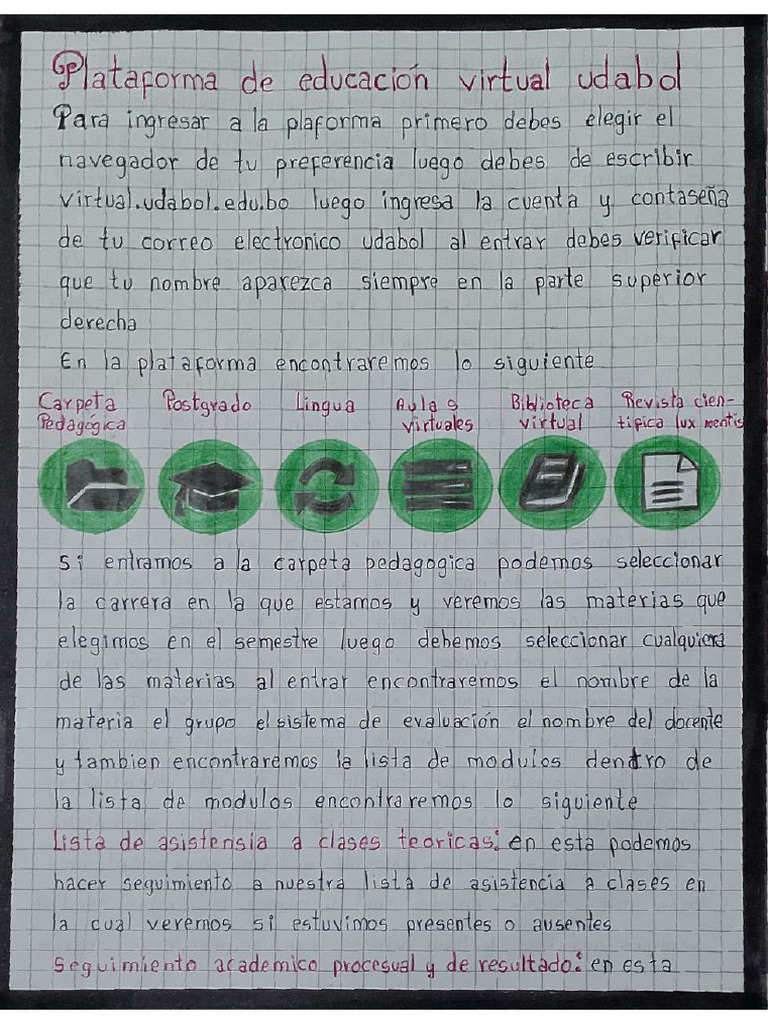 Plataforma de educación virtual udabol
Para ingresar a la plaforma primero debes elegir el
navegador de tu preferencia luego debes de escribir
virtual.udabol.edu.bo luego ingresa la cuenta y contaseña
de tu correo electronico udabol al entrar debes verificar
que tu nombre aparezca siempre en la parte superior
derecha
En la plataforma encontraremos lo siguiente
Carpeta Pedagógica
Postgrado
Lingua
Aulas virtuales
Biblioteca virtual
Revista cien-
tifica lux mentis
Si entramos a la carpeta pedagogica podemos seleccionar
la carrera en la que estamos y veremos las materias que
elegimos en el semestre luego debemos seleccionar cualquiera
de las materias al entrar encontraremos el nombre de la
materia el grupo el sistema de evaluación el nombre del docente
y tambien encontraremos la lista de modulos dentro de
la lista de modulos encontraremos lo siguiente
Lista de asistensia a clases teoricas: en esta podemos
hacer seguimiento a nuestra lista de asistencia a clases en
la cual veremos si estuvimos presentes o ausentes
Seguimiento academico procesual y de resultado: en esta